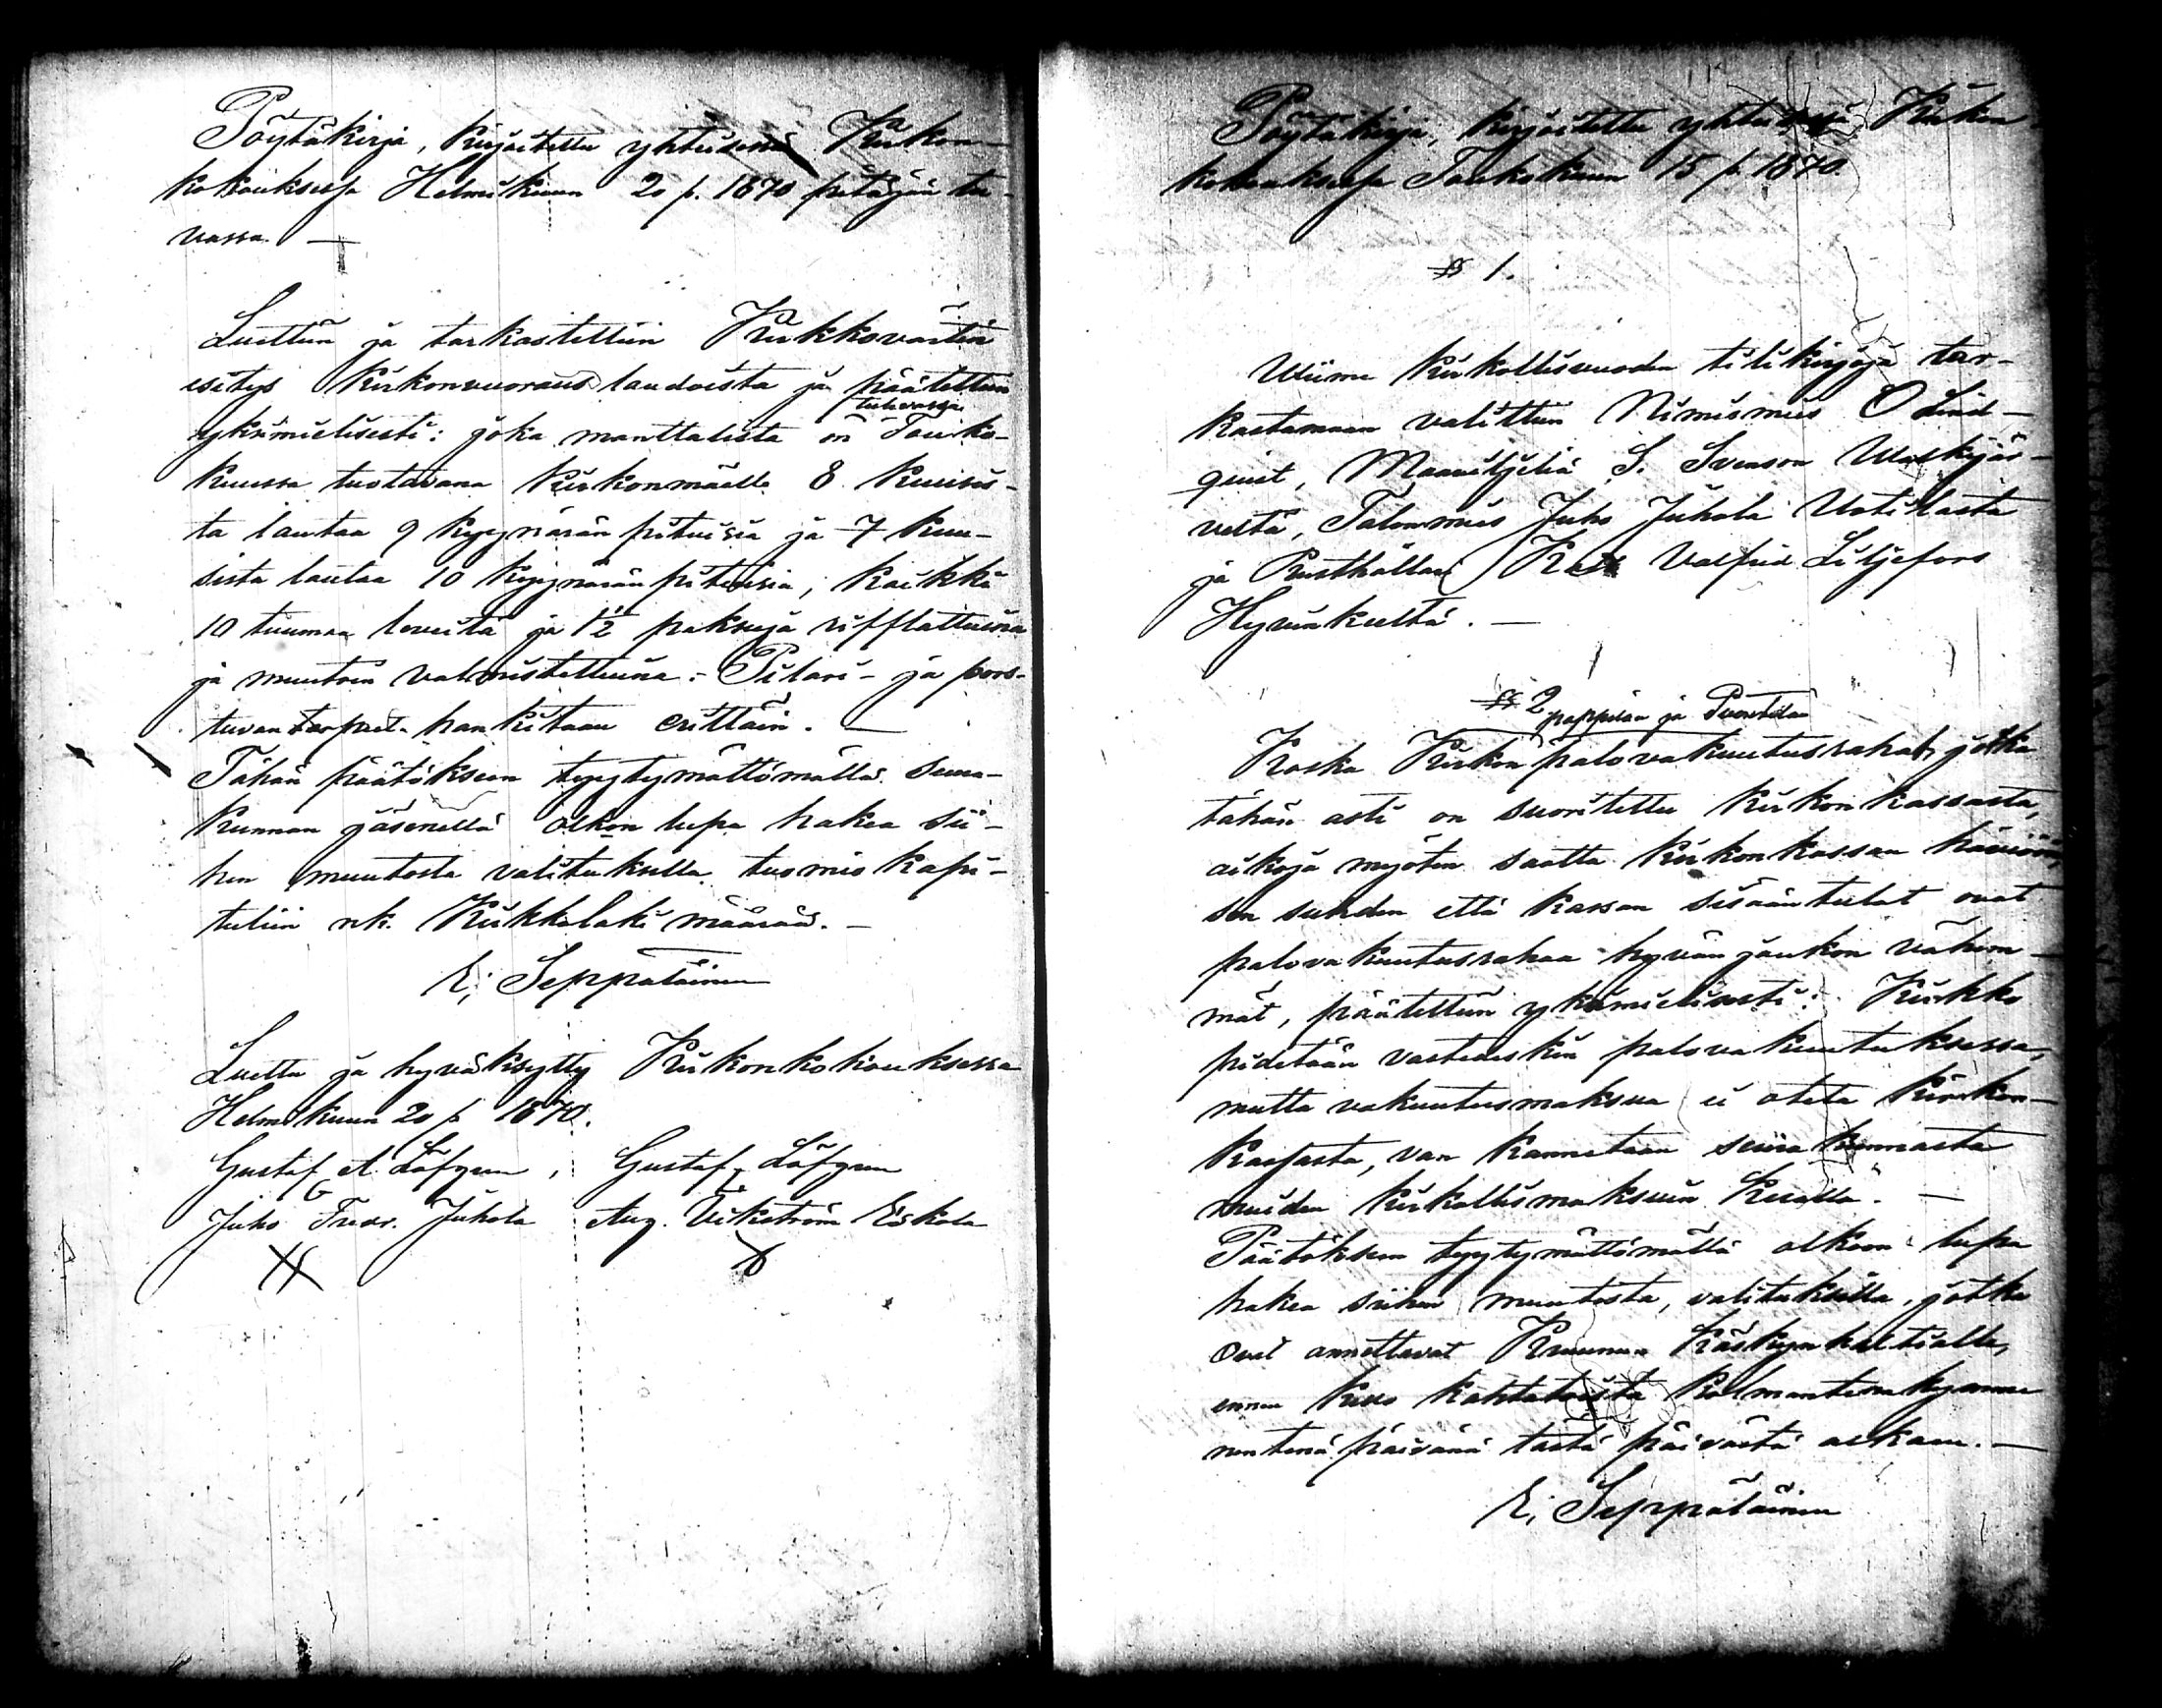 Pöytäkirja, kirjoitettu yhteisessä Kirkon-
kokouksessa Helmikuun 20 p. 1870 pitäjän tu-
vassa. —
Luettiin ja tarkastettiin Kirkkovärtin
esitys Kirkonvuoraus laudoista ja päätettiin
yksimielisesti: joka manttalista on tulevassa Touko-
kuussa tuotavana Kirkonmäelle 8 kuusis-
ta lautaa 9 kyynärän pituisia ja 7 kuu-
sista lautaa 10 kyynärän pituisia, kaikki
10 tuumaa leveitä ja 1½ paksuja rifflattuina
ja muutoin valmistettuina. - Pilari- ja pors-
tuvan tarpeet hankitaan erittäin. —
Tähän päätökseen tyytymättömällä seura-
kunnan jäsenellä olkon lupa hakea sii-
hen muutosta valituksella tuomiokapi-
tuliin nk. Kirkkolaki määrää. —
E, Seppäläinen
Luettu ja hyväksytty Kirkonkokouksessa
Helmikuun 20 p 1870.
Gustaf A Löfgren, Gustaf Löfgren
Juho Fredr. Juhola Aug. Vikström Eskola
Pöytäkirja, kirjoitettu yhteisessä Kirkon-
kokouksessa Toukokuun 15 p. 1870.
§ 1.
Wiime kirkollisvuoden tilikirjoja tar-
kastamaan valittiin Nimismies O Lind-
qvist, Maanviljeliä S. Svenson Waskijär-
veltä, Talonmies Juho Juhola Uotilasta
ja Rusthållari Valfrid Liljefors
Hyvikkeeltä. —
§ 2
pappilan ja Puustellin
Koska Kirkon palovakuutusrahat, jotka
tähän asti on suoritettu kirkonkassasta,
aikoja myöten saatta kirkonkassaa häviöön,
sen suhden että kassan sisääntulot ovat
palovakuutusrahaa hyvän joukon vähem-
mät, päätettiin yksimielisesti: Kirkko
pidetään vasteeskin palovakuutuksessa,
mutta vakuutusmaksua ei oteta kirkon-
kassasta, van kannetaan seurakunnasta
muiden kirkollismaksuin kanssa. —
Päätökseen tyytymättömällä olkoon lupa
hakea siihen muutosta, valituksilla, jotka
ovat annettavat Kruunun Käskynhaltialle,
ennen kello kahtatoista kolmantenakymme
nentenä päivänä tästä päivästä alkaen. —
E, Seppäläinen